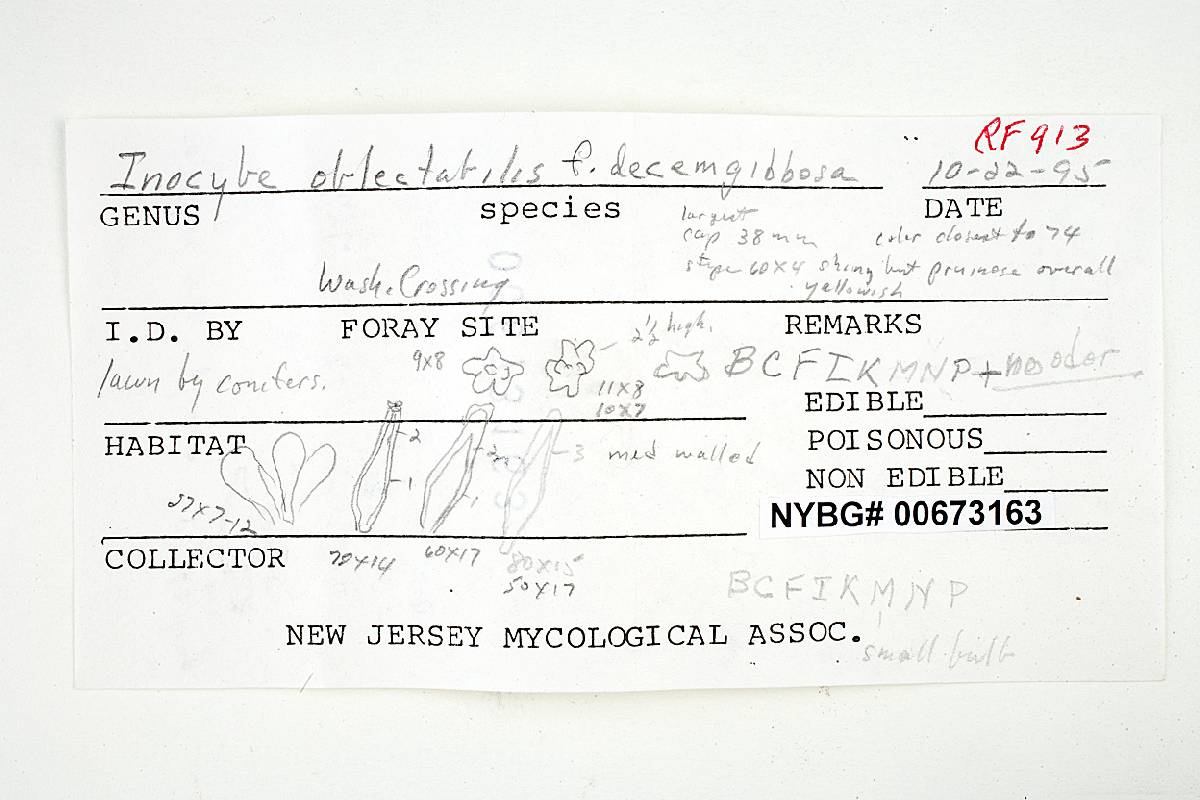 RF 913
Inocybe oblectabilis f. decemgibbosa 10-22-95
GENUS species DATE
largest
cap 38 mm color closest to 74
stipe 60x4 shiny but pruinose overall
yellowish
Wash. Crossing
I.D. BY FORAY SITE REMARKS
2½ high.
9x8
lawn by conifers.
BCFIKMNP + no odor
11x8
10x7
EDIBLE
HABITAT
2
3 med walled
POISONOUS
1
1
NON EDIBLE
57x7-12
NYBG# 00673163
COLLECTOR
70x14 60x17 80x15
50x17
BCFIKMNP
small bulb
NEW JERSEY MYCOLOGICAL ASSOC.